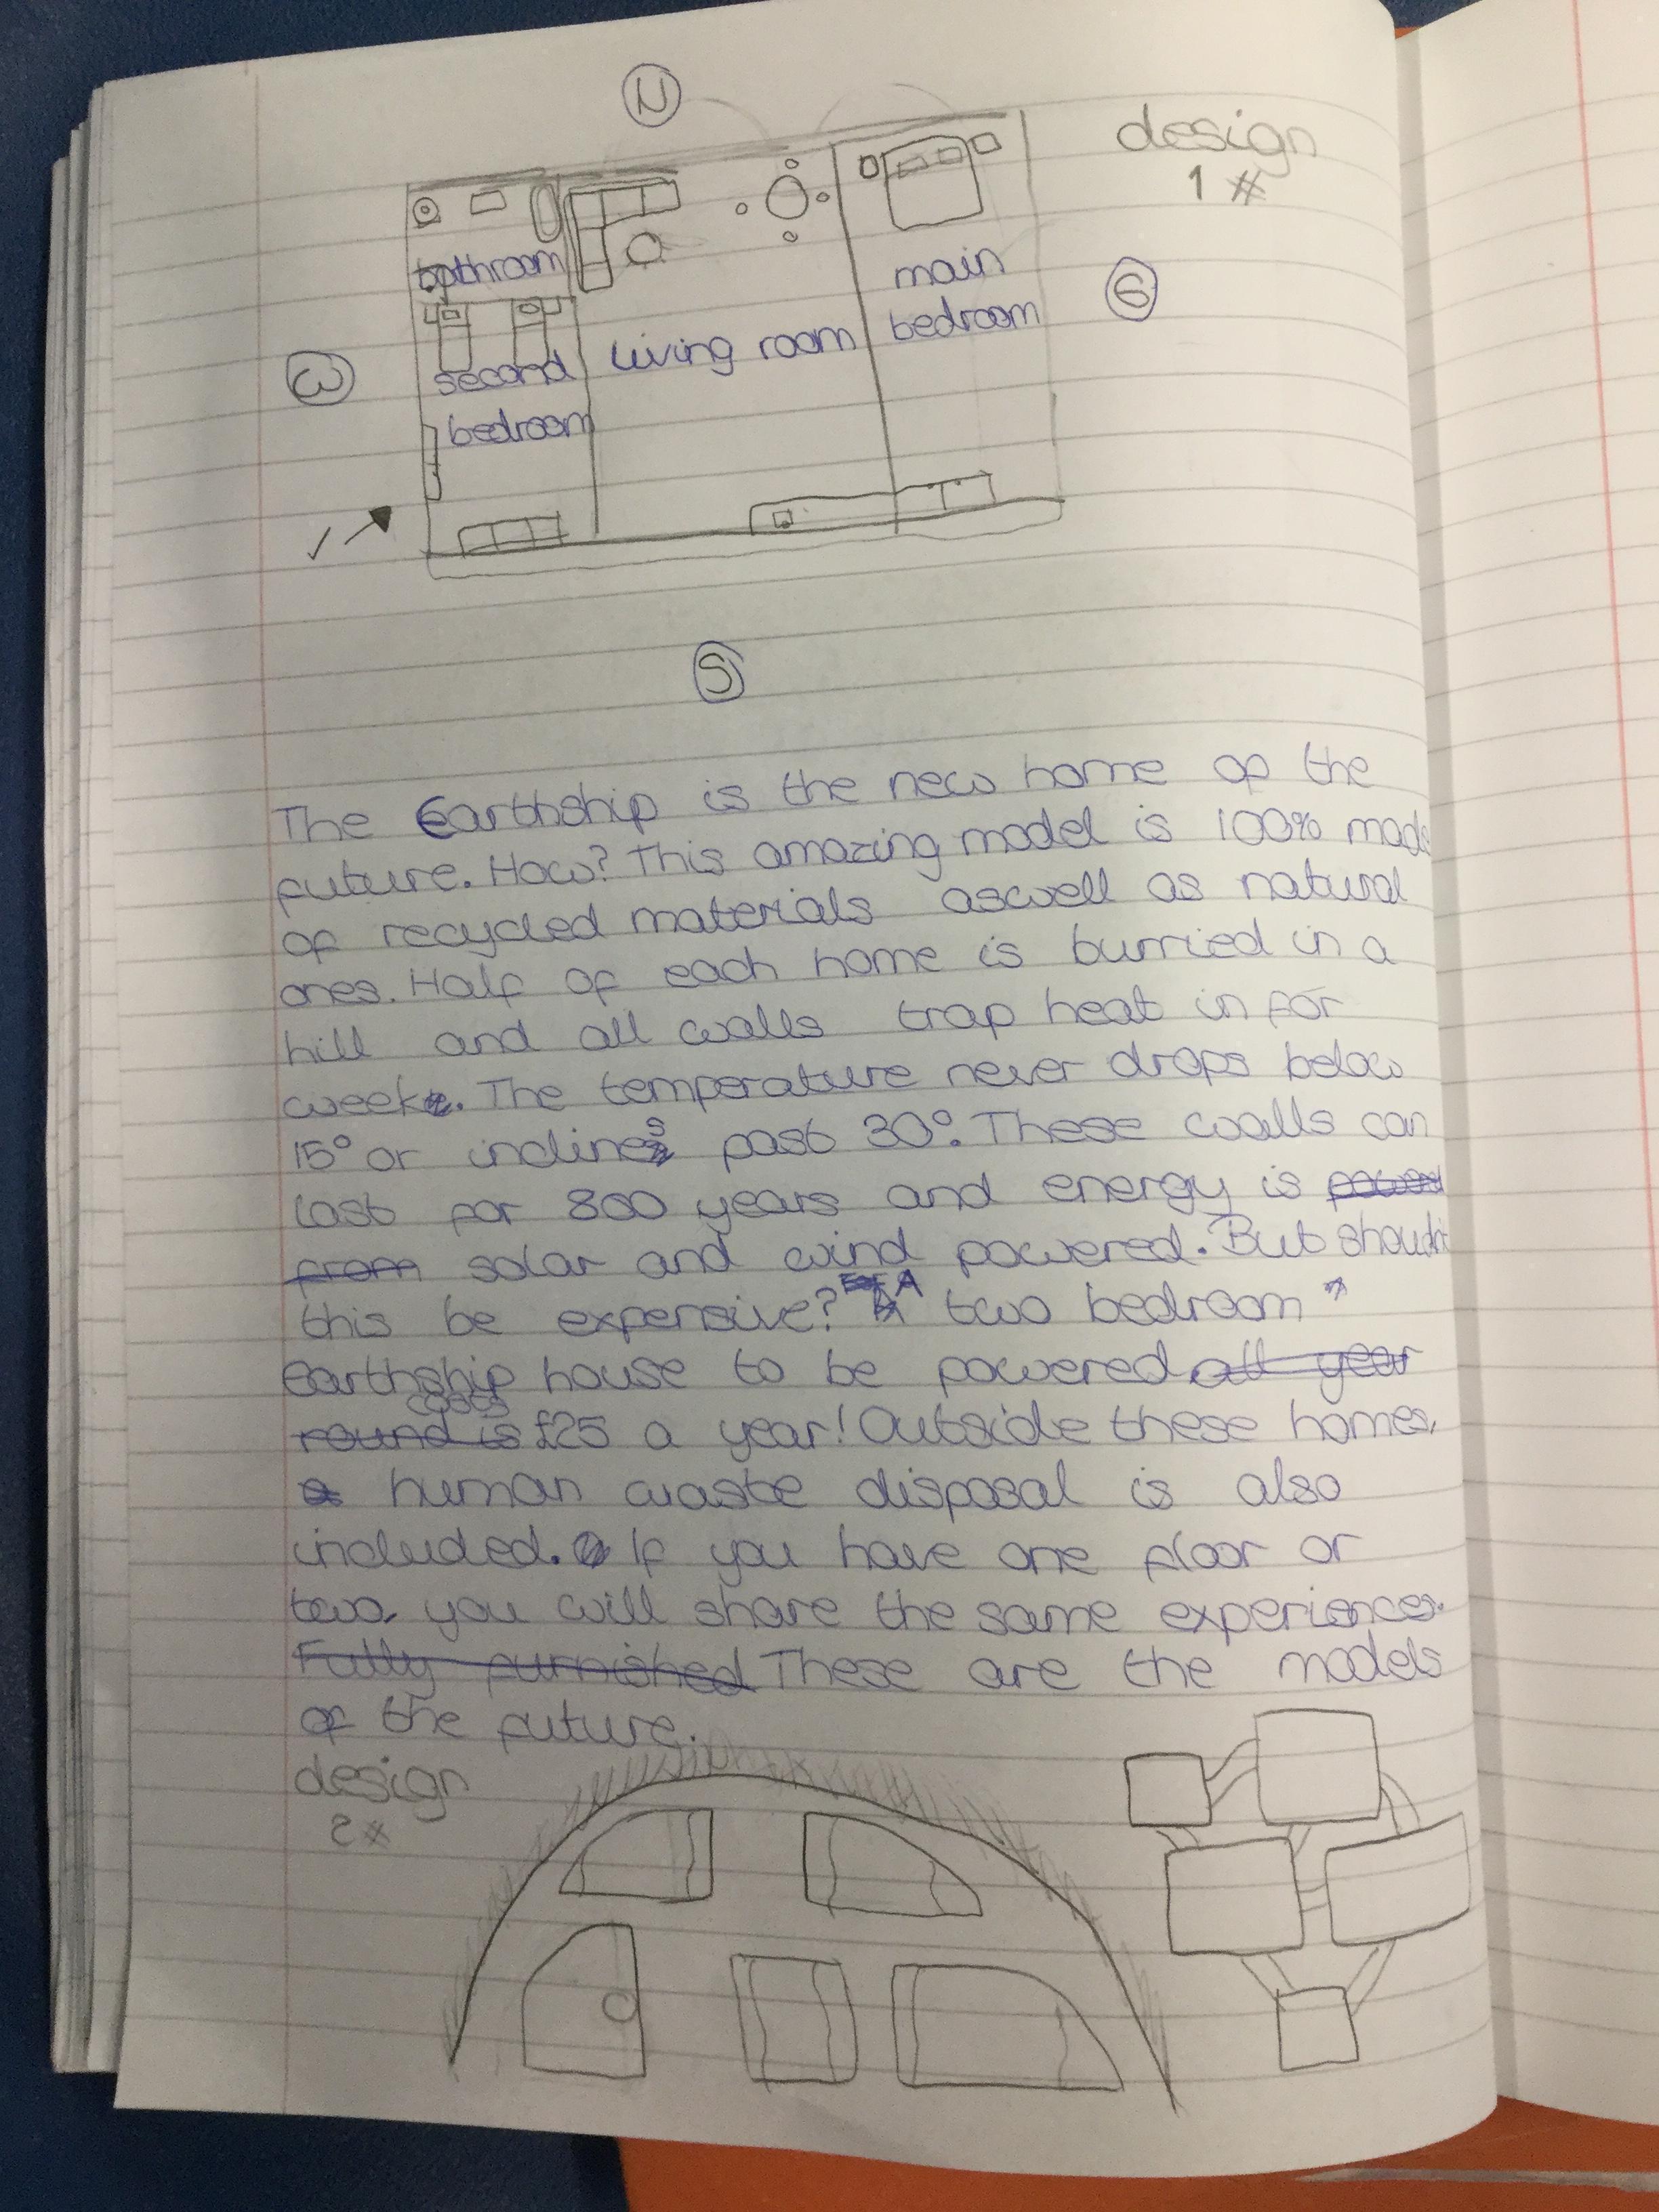 N
design
1 #
bathroom
main
bedroom
E
W
second
living room
bedroom
S
The Earthship is the new home of the
future. How? This amazing model is 100% made
of recycled materials aswell as natural
ones. Half of each home is burried in a
hill and all walls trap heat in for
weeks. The temperature never drops below
15° or inclines past 30°. These walls can
last for 800 years and energy is powered
from solar and wind powered. But shouldn't
this be expensive? A two bedroom
Earthship house to be powered all year
costs
round is £25 a year! Outside these homes,
a human waste disposal is also
included. If you have one floor or
two, you will share the same experience.
Fully furnished These are the models
of the future.
design
2 #